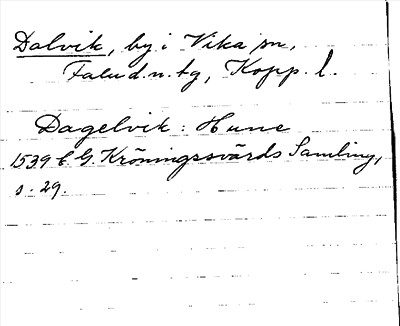 Dalvik, by i Vika sn,
Falu d.n. tg, Kopp. l.
Dagelvik: Hune
1539 C G. Kröningssvärds Samling,
s. 29.